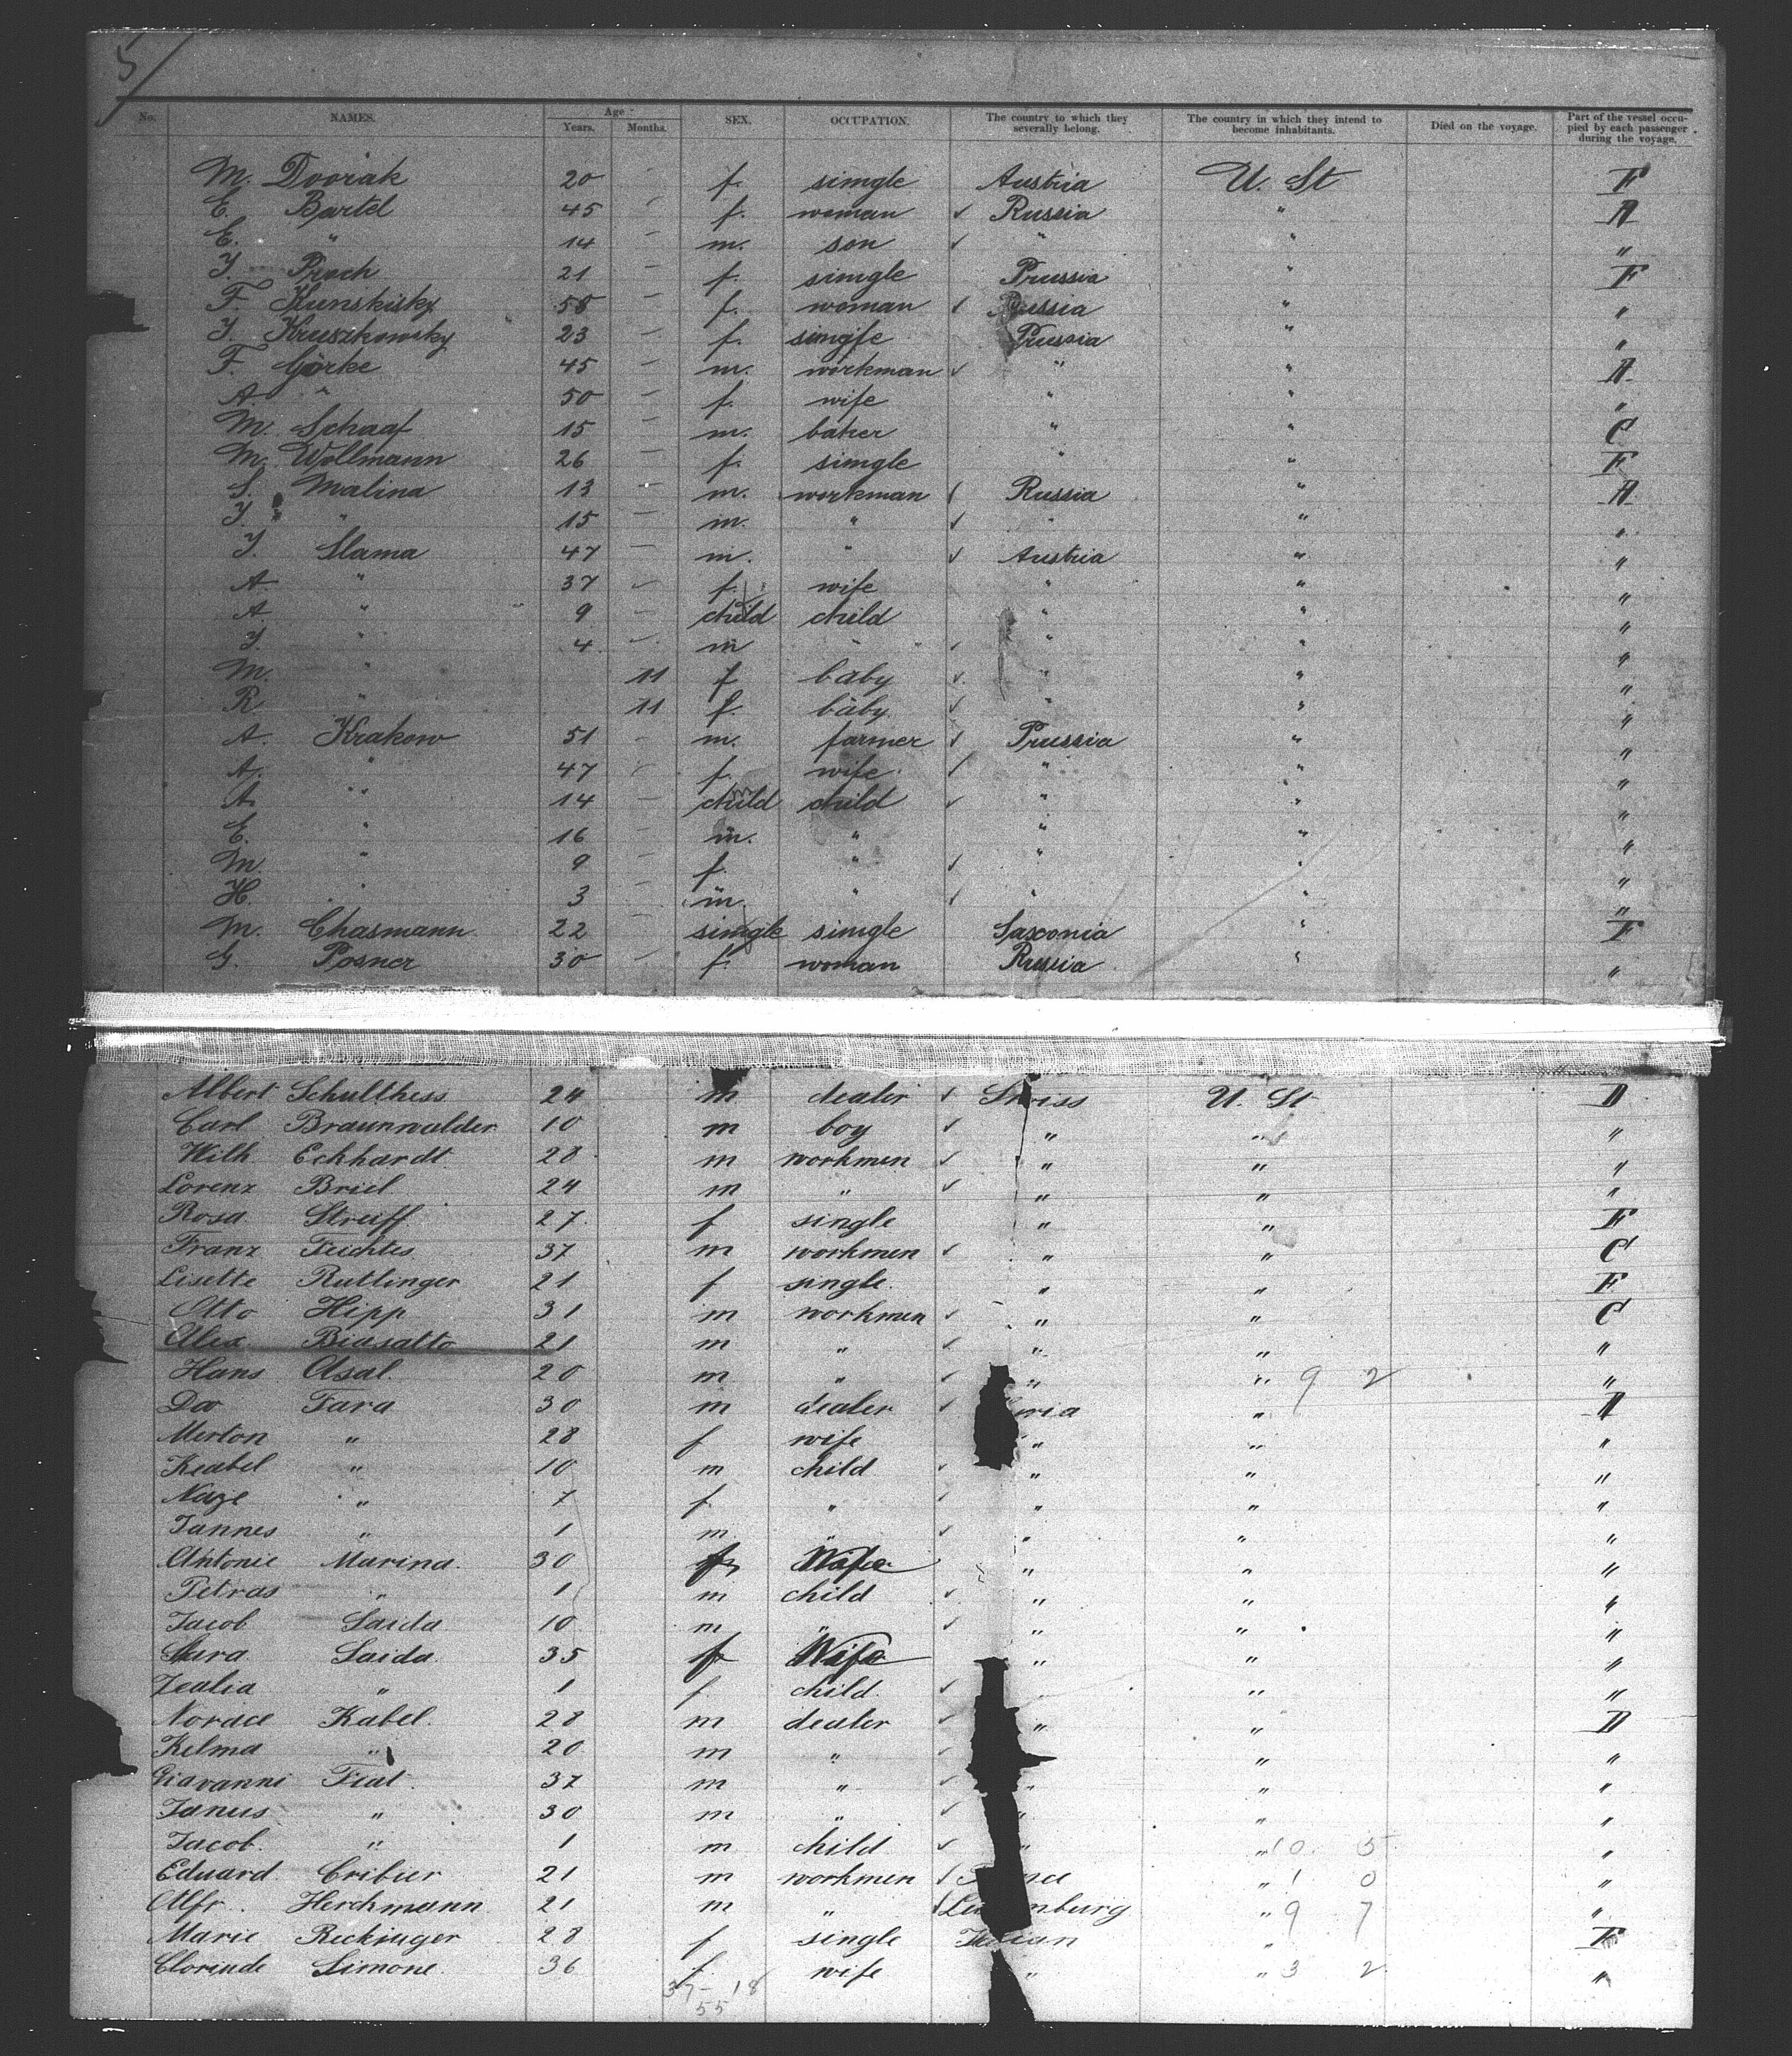 5/
No. NAMES. Age Years. Months. SEX. OCCUPATION. The country to which they severally belong. The country in which they intend to become inhabitants. Died on the voyage. Part of the vessel occupied by each passenger during the voyage.
M. Dvořak 20 - f. simgle Austria U. St F
E. Bartel 45 - f. woman ✓ Russia " A
E. " 14 - m. son ✓ " " "
J. Proch 21 - f. simgle Prussia " F
F. Kunskisky 58 - f. woman ✓ Russia " "
J. Kruszkowsky 23 - f. simgle Prussia " "
F. Görke 45 - m. workman ✓ " " A
A " 50 - f. wife " " "
M. Schaaf 15 - m. baker " " C
M. Wollmann 26 - f. simgle " " F
S. Malina 13 - m. workman ✓ Russia " A
J. " 15 - m. " ✓ " " "
J. Slama 47 - m. " ✓ Austria " "
A. " 37 - f. wife " " "
A " 9 - child child " " "
J. " 4 - m " ✓ " " "
M. " 11 f baby ✓ " " "
R " 11 f. baby ✓ " " "
A. Krakow 51 - m. farmer ✓ Prussia " "
A. " 47 - f. wife ✓ " " "
A. " 14 - child child ✓ " " "
E. " 16 - m. " " " "
M. " 9 - f. " ✓ " " "
H. " 3 - m. " ✓ " " "
M. Chasmann 22 - simgle simgle Saxonia " F
G. Posner 30 - f. woman Russia " "
Albert Schulthess 24 m dealer ✓ Swiss U. St D
Carl Braunwalder 10 m boy ✓ " " "
Wilh. Eckhardt 28 m workmen ✓ " " "
Lorenz Briel 24 m " ✓ " " "
Rosa Streiff 27 f single " " F
Franz Feichtes 37 m workmen ✓ " " C
Lisette Rutlinger 21 f single " " F
Otto Hipp 31 m workmen ✓ " " C
Alex Biasatto 21 m " ✓ " " "
Hans Asal 20 m " ✓ " " 9 2 "
Fara 30 m dealer ✓ " A
Merton " 28 f wife " " "
Keabel " 10 m child ✓ " " "
Naze " 7 f " ✓ " " "
Jannes " 1 m " ✓ " " "
Antonie Marina 30 f Wife " " "
Petras " 1 m child ✓ " " "
Jacob Saida 10 m " ✓ " " "
Sara Saida 35 f Wife " " "
Zealia " 1 f child ✓ " "
Norace Kabel 28 m dealer ✓ " " D
Kelma " 20 m " ✓ " "
Giavanni Fiat 37 m " ✓ " " "
Janus " 30 m " ✓ " " "
Jacob " 1 m child ✓ " " 10 5 "
Eduard Cribier 21 m workmen ✓ " 1 0 "
Alfr. Herchmann 21 m " ✓ " 9 7 "
Marie Reckinger 28 f single " F
Clorinde Simone 36 f wife " " 3 2 "
37 - 18
55